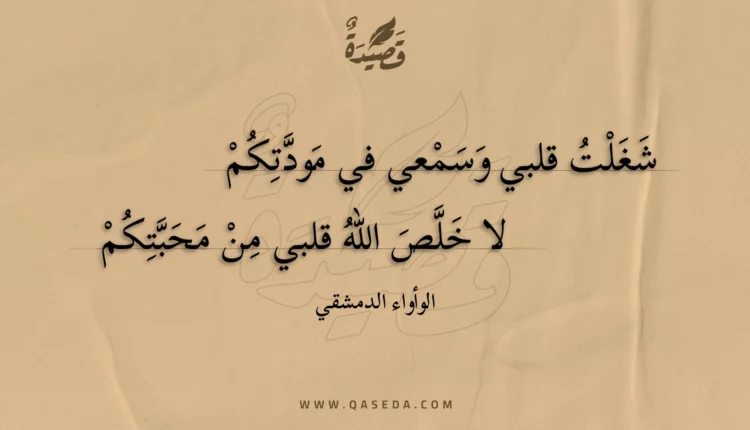 قَصِيدَةٌ
شَغَلْتُ قلبي وَسَمْعي في مَودَّتِكُمْ
لا خَلَّصَ اللهُ قلبي مِنْ مَحَبَّتِكُمْ
الوأواء الدمشقي
WWW.QASEDA.COM